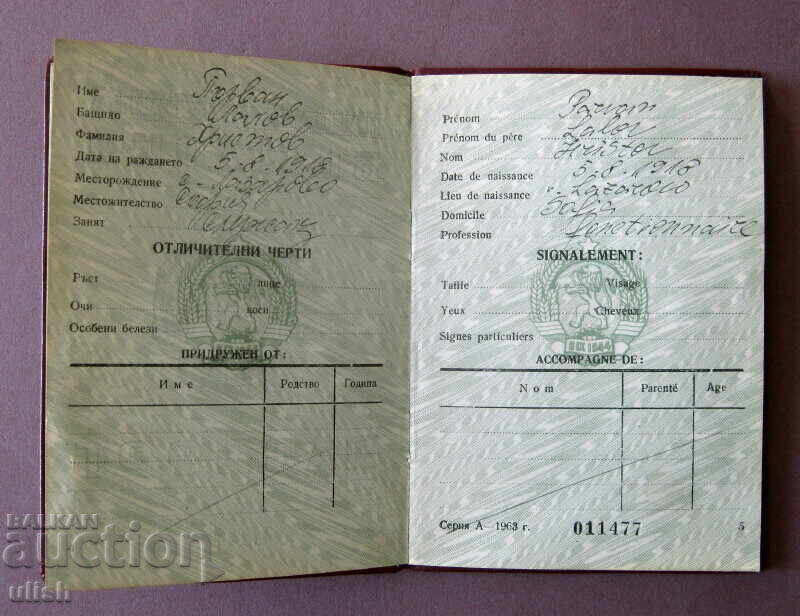 Име Първан
Бащино Лалов
Фамилия Христов
Дата на раждането 5.8.1918
Месторождение с. Лазарово
Местожителство София
Занят
ОТЛИЧИТЕЛНИ ЧЕРТИ
Ръст лице
Очи коси
Особени белези
9 IX 1944
ПРИДРУЖЕН ОТ:
Име Родство Година
БАЛКАН
auction
ulish
Prénom Parvan
Prénom du père Lalov
Nom Hristov
Date de naissance 5.8.1918
Lieu de naissance Lazarovo
Domicile Sofia
Profession
SIGNALEMENT:
Taille Visage
Yeux Cheveux
Signes particuliers
9 IX 1944
ACCOMPAGNE DE:
Nom Parenté Age
Серия А — 1963 г. 011477 5